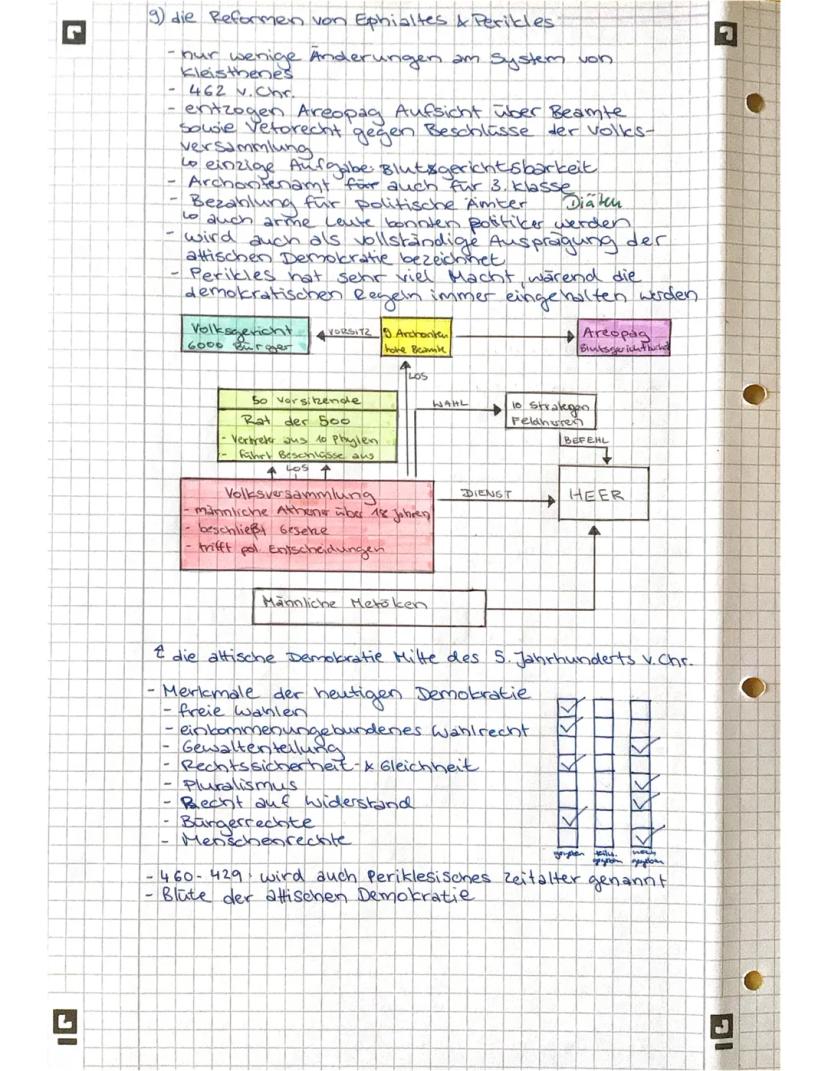 g) die Reformen von Ephialtes & Perikles
- nur wenige Änderungen am System von
Kleisthenes
- 462 v. Chr.
- entzogen Areopag Aufsicht über Beamte
sowie Vetorecht gegen Beschlüsse der Volks-
versammlung
↳ einzige Aufgabe: Blutsgerichtsbarkeit
- Archontenamt auch für 3. Klasse
- Bezahlung für politische Ämter Diäten
↳ auch arme Leute konnten politiker werden
- wird auch als vollständige Ausprägung der
attischen Demokratie bezeichnet
- Perikles hat sehr viel Macht, wärend die
demokratischen Regeln immer eingehalten werden
Volksgericht
6000 Bürger
VORSITZ
9 Archonten
hohe Beamte
Areopag
Blutsgerichtbarkeit
LOS
50 Vorsitzende
Rat der 500
- Vertreter aus 10 Phylen
- führt Beschlüsse aus
WAHL
10 Strategen
Feldherren
BEFEHL
LOS
Volksversammlung
- männliche Athener über 18 Jahren
- beschließt Gesetze
- trifft pol. Entscheidungen
DIENST
HEER
Männliche Metöken
↑ die attische Demokratie Mitte des 5. Jahrhunderts v. Chr.
- Merkmale der heutigen Demokratie
- freie Wahlen
- einkommenungebundenes Wahlrecht
- Gewaltenteilung
- Rechtssicherheit- & Gleichheit
- Pluralismus
- Recht auf Widerstand
- Bürgerrechte
- Menschenrechte
gegeben teilw. gegeben nicht gegeben
- 460-429: wird auch Periklesisches Zeitalter genannt
- Blüte der attischen Demokratie